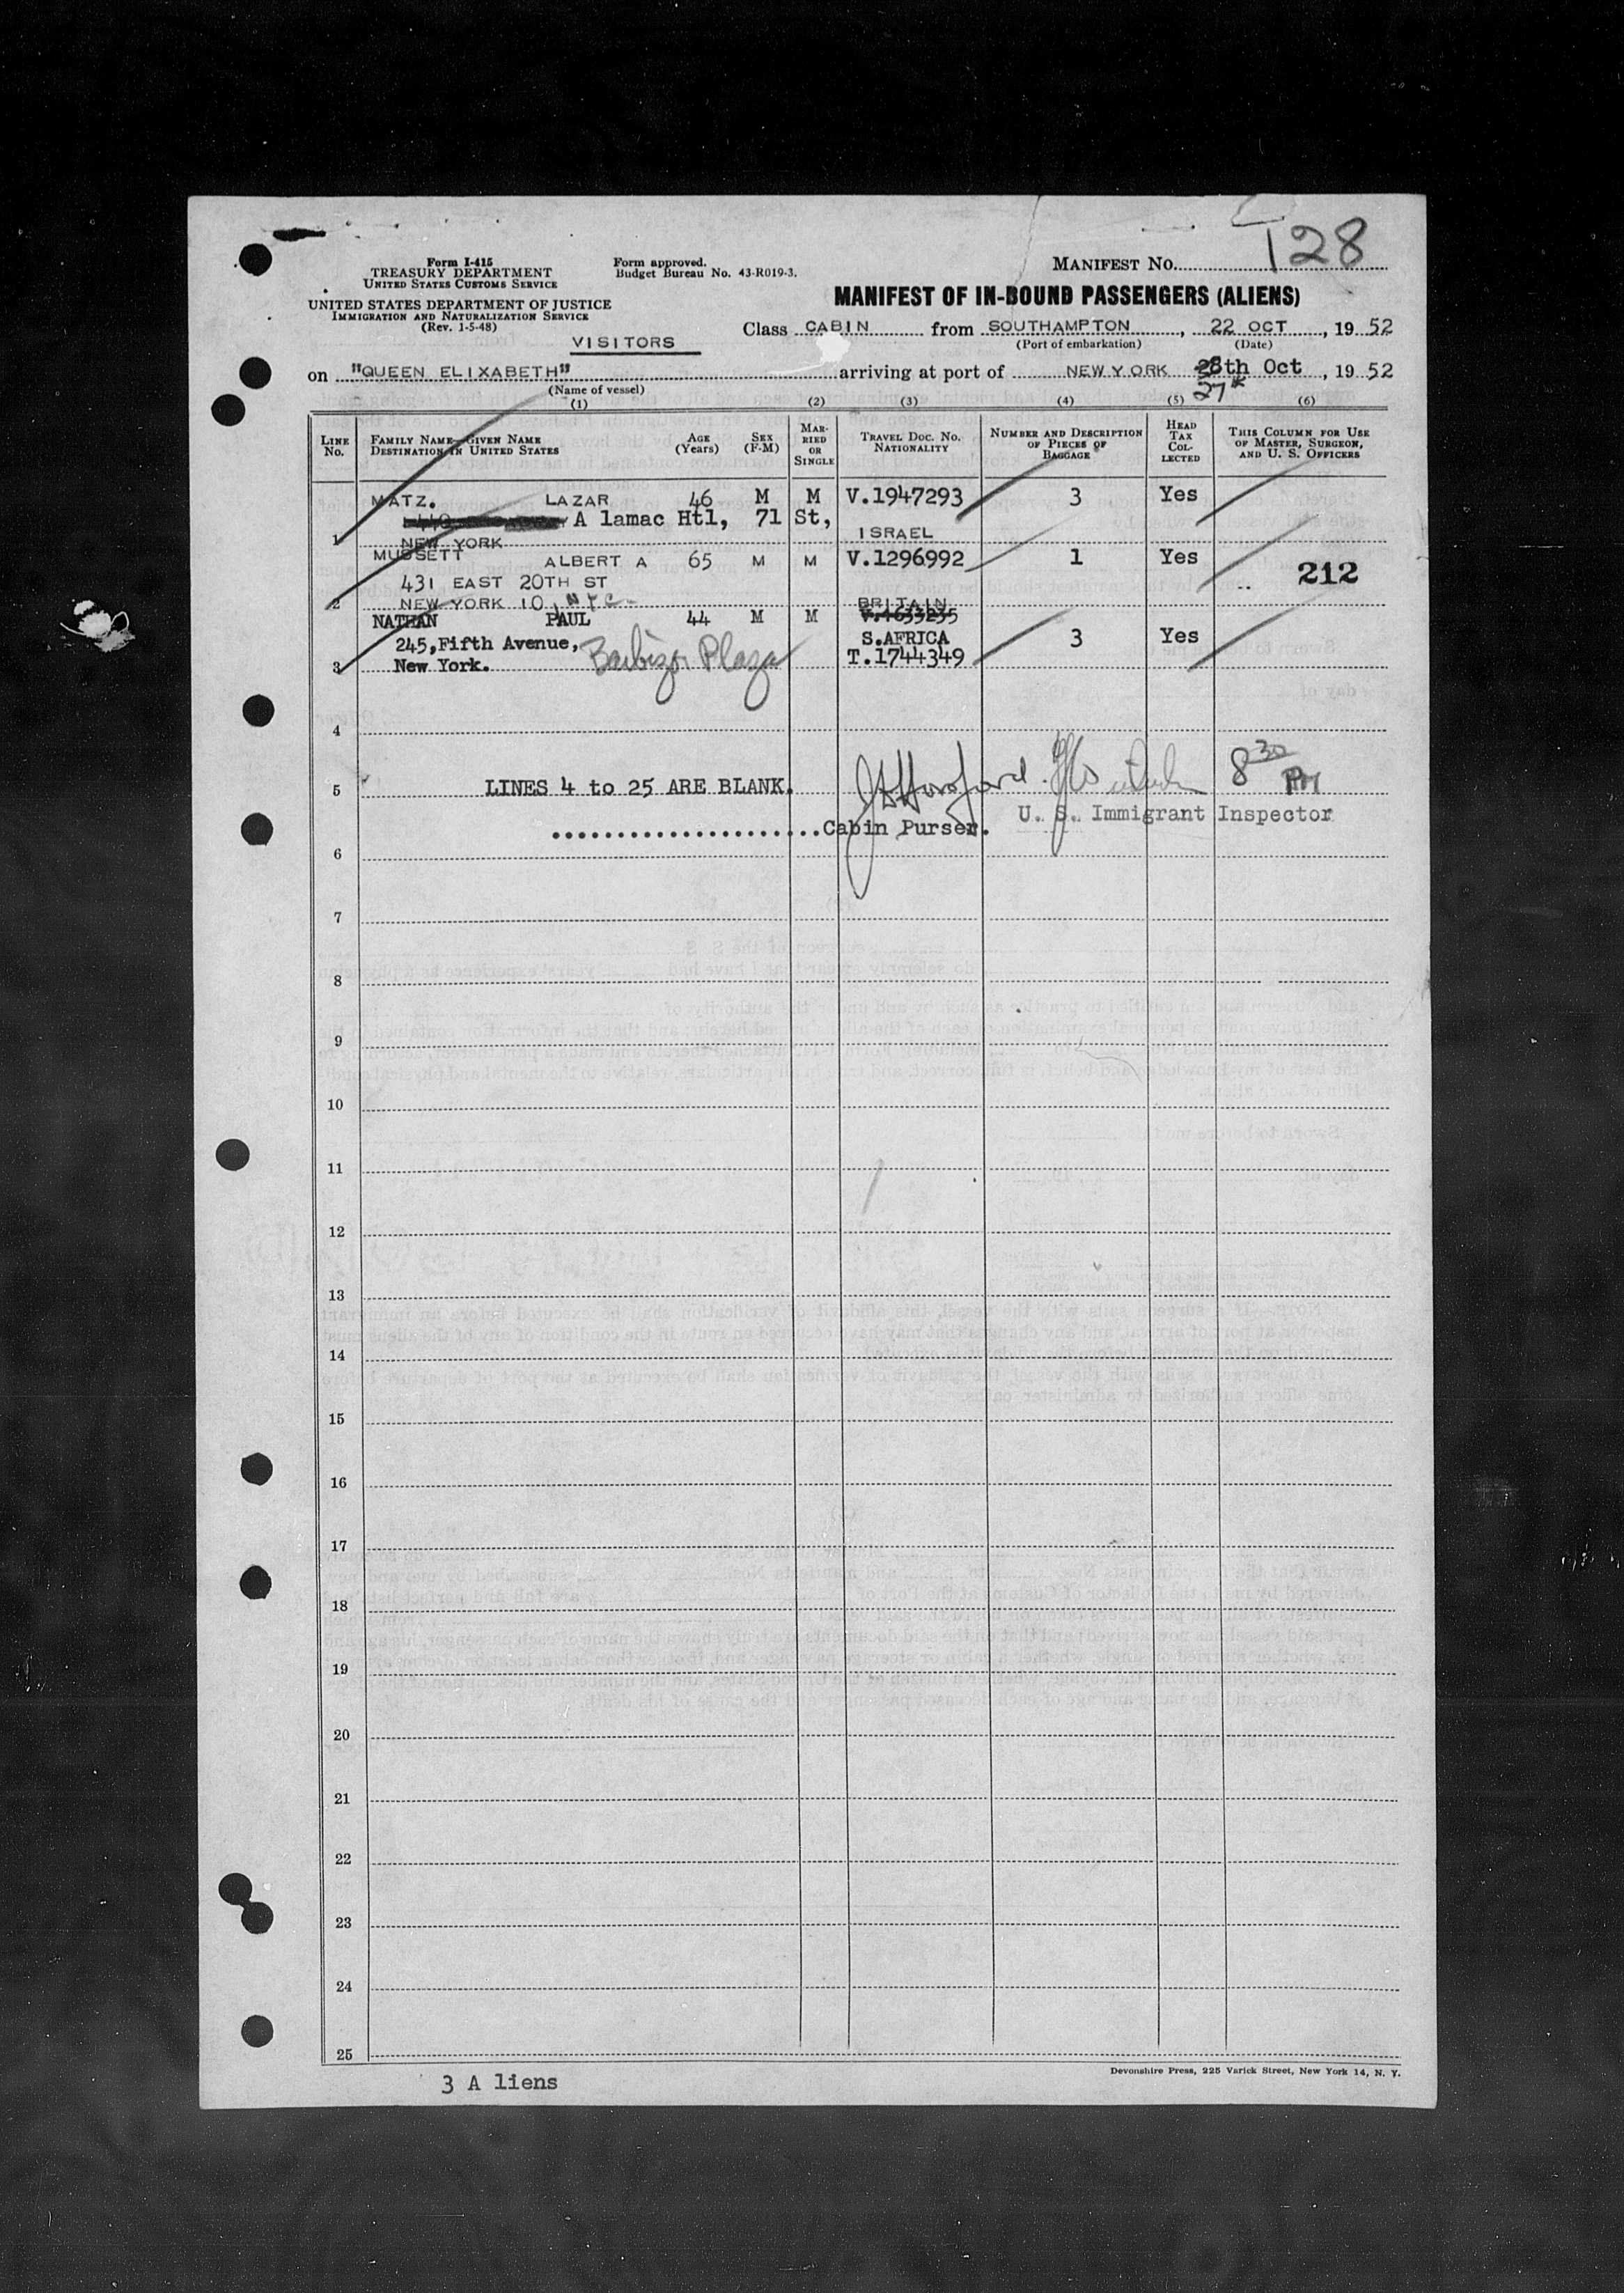 T28
Form I-415
TREASURY DEPARTMENT
UNITED STATES CUSTOMS SERVICE
Form approved.
Budget Bureau No. 43-R019-3.
MANIFEST NO.
UNITED STATES DEPARTMENT OF JUSTICE
IMMIGRATION AND NATURALIZATION SERVICE
(Rev. 1-5-48)
MANIFEST OF IN-BOUND PASSENGERS (ALIENS)
VISITORS
Class CABIN from SOUTHAMPTON, 22 OCT, 19 52
(Port of embarkation) (Date)
on "QUEEN ELIXABETH" arriving at port of NEW YORK 28th Oct, 19 52
27
(Name of vessel)
(1) (2) (3) (4) (5) (6)
LINE No.
FAMILY NAME—GIVEN NAME
DESTINATION IN UNITED STATES
AGE (Years)
SEX (F-M)
MARRIED OR SINGLE
TRAVEL DOC. NO. NATIONALITY
NUMBER AND DESCRIPTION OF PIECES OF BAGGAGE
HEAD TAX COLLECTED
THIS COLUMN FOR USE OF MASTER, SURGEON, AND U. S. OFFICERS
MATZ. LAZAR 46 M M V.1947293 3 Yes
A lamac Htl, 71 St,
1 NEW YORK ISRAEL
MUSSETT ALBERT A 65 M M V.1296992 1 Yes 212
431 EAST 20TH ST
2 NEW YORK 10, NYC BRITAIN
NATHAN PAUL 44 M M V.1633235
245,Fifth Avenue, Barbizon Plaza S.AFRICA 3 Yes
3 New York. T.1744349
4
5 LINES 4 to 25 ARE BLANK. 8 30 PM
Cabin Purser. U. S. Immigrant Inspector
6
7
8
9
10
11
12
13
14
15
16
17
18
19
20
21
22
23
24
25
Devonshire Press, 225 Varick Street, New York 14, N. Y.
3 A liens